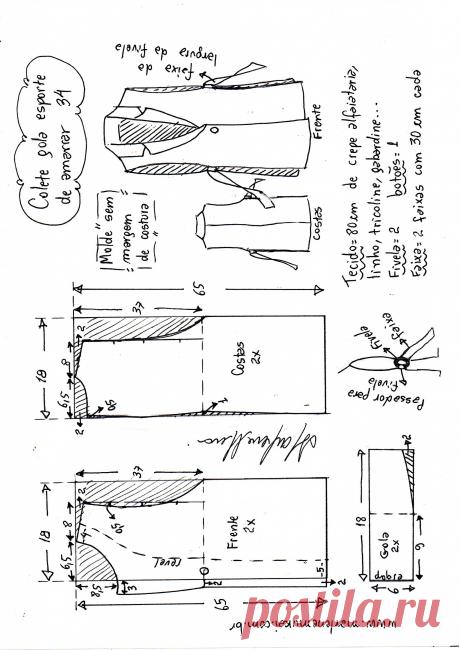 Colete gola esporte
de amarrar 34
"Molde sem
margem
de costura"
faixa da
largura da fivela
Frente
costas
Tecido= 80cm de crepe alfaiataria,
linho, tricoline, gabardine...
Fivela= 2 botões= 1
Faixa= 2 faixas com 30 cm cada
18
6,5
8
2
2
0,5
37
65
1
Costas
2x
18
6,5
8
2
4
8,5
3
0,5
37
65
revel
Frente
2x
2
5
2
fivela
faixa
Passador para
fivela
18
9
6
2
Gola
2x
www.marlenemukai.com.br
postila.ru